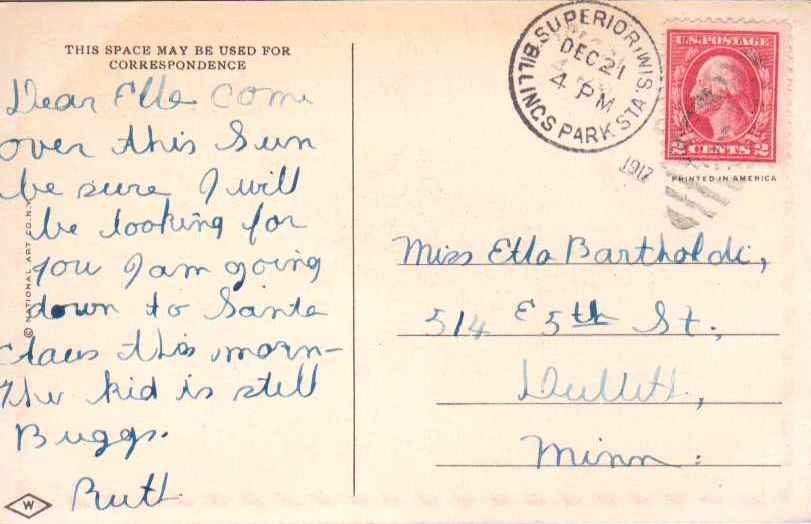 THIS SPACE MAY BE USED FOR
CORRESPONDENCE
Dear Ella come
over this Sun
be sure I will
be looking for
you I am going
down to Santa
Claus this morn-
The kid is still
Buggs.
Ruth
© NATIONAL ART CO. N.Y.
W
SUPERIOR, WIS.
DEC 21
4 PM
BILLINGS PARK STA.
1917
U.S. POSTAGE
2 CENTS 2
PRINTED IN AMERICA
Miss Ella Bartholdi,
514 E 5th St.,
Duluth,
Minn.